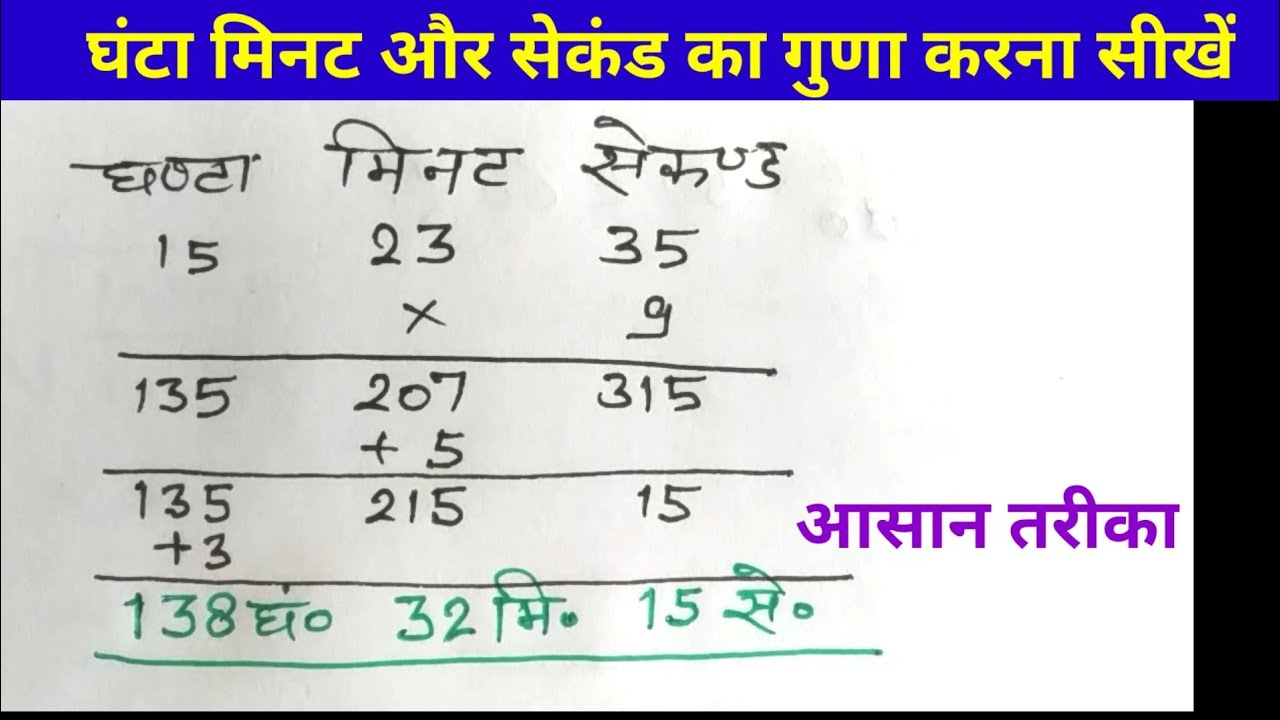 घंटा मिनट और सेकंड का गुणा करना सीखें
घण्टा मिनट सेकण्ड
15 23 35
× 9
135 207 315
+ 5
135 215 15
+3
आसान तरीका
138 घं० 32 मि० 15 से०